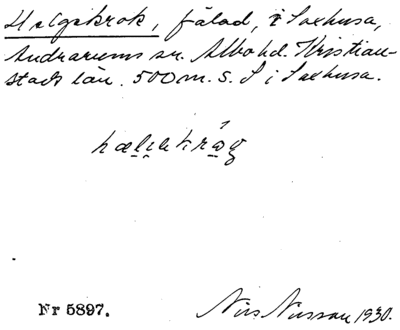 Helgekrok, fälad, i Saxhusa,
Andrarums sn. Albo hd. Kristian-
stads län. 500 m. S. S i Saxhusa.
Nr 5897. Nils Nilsson 1930.